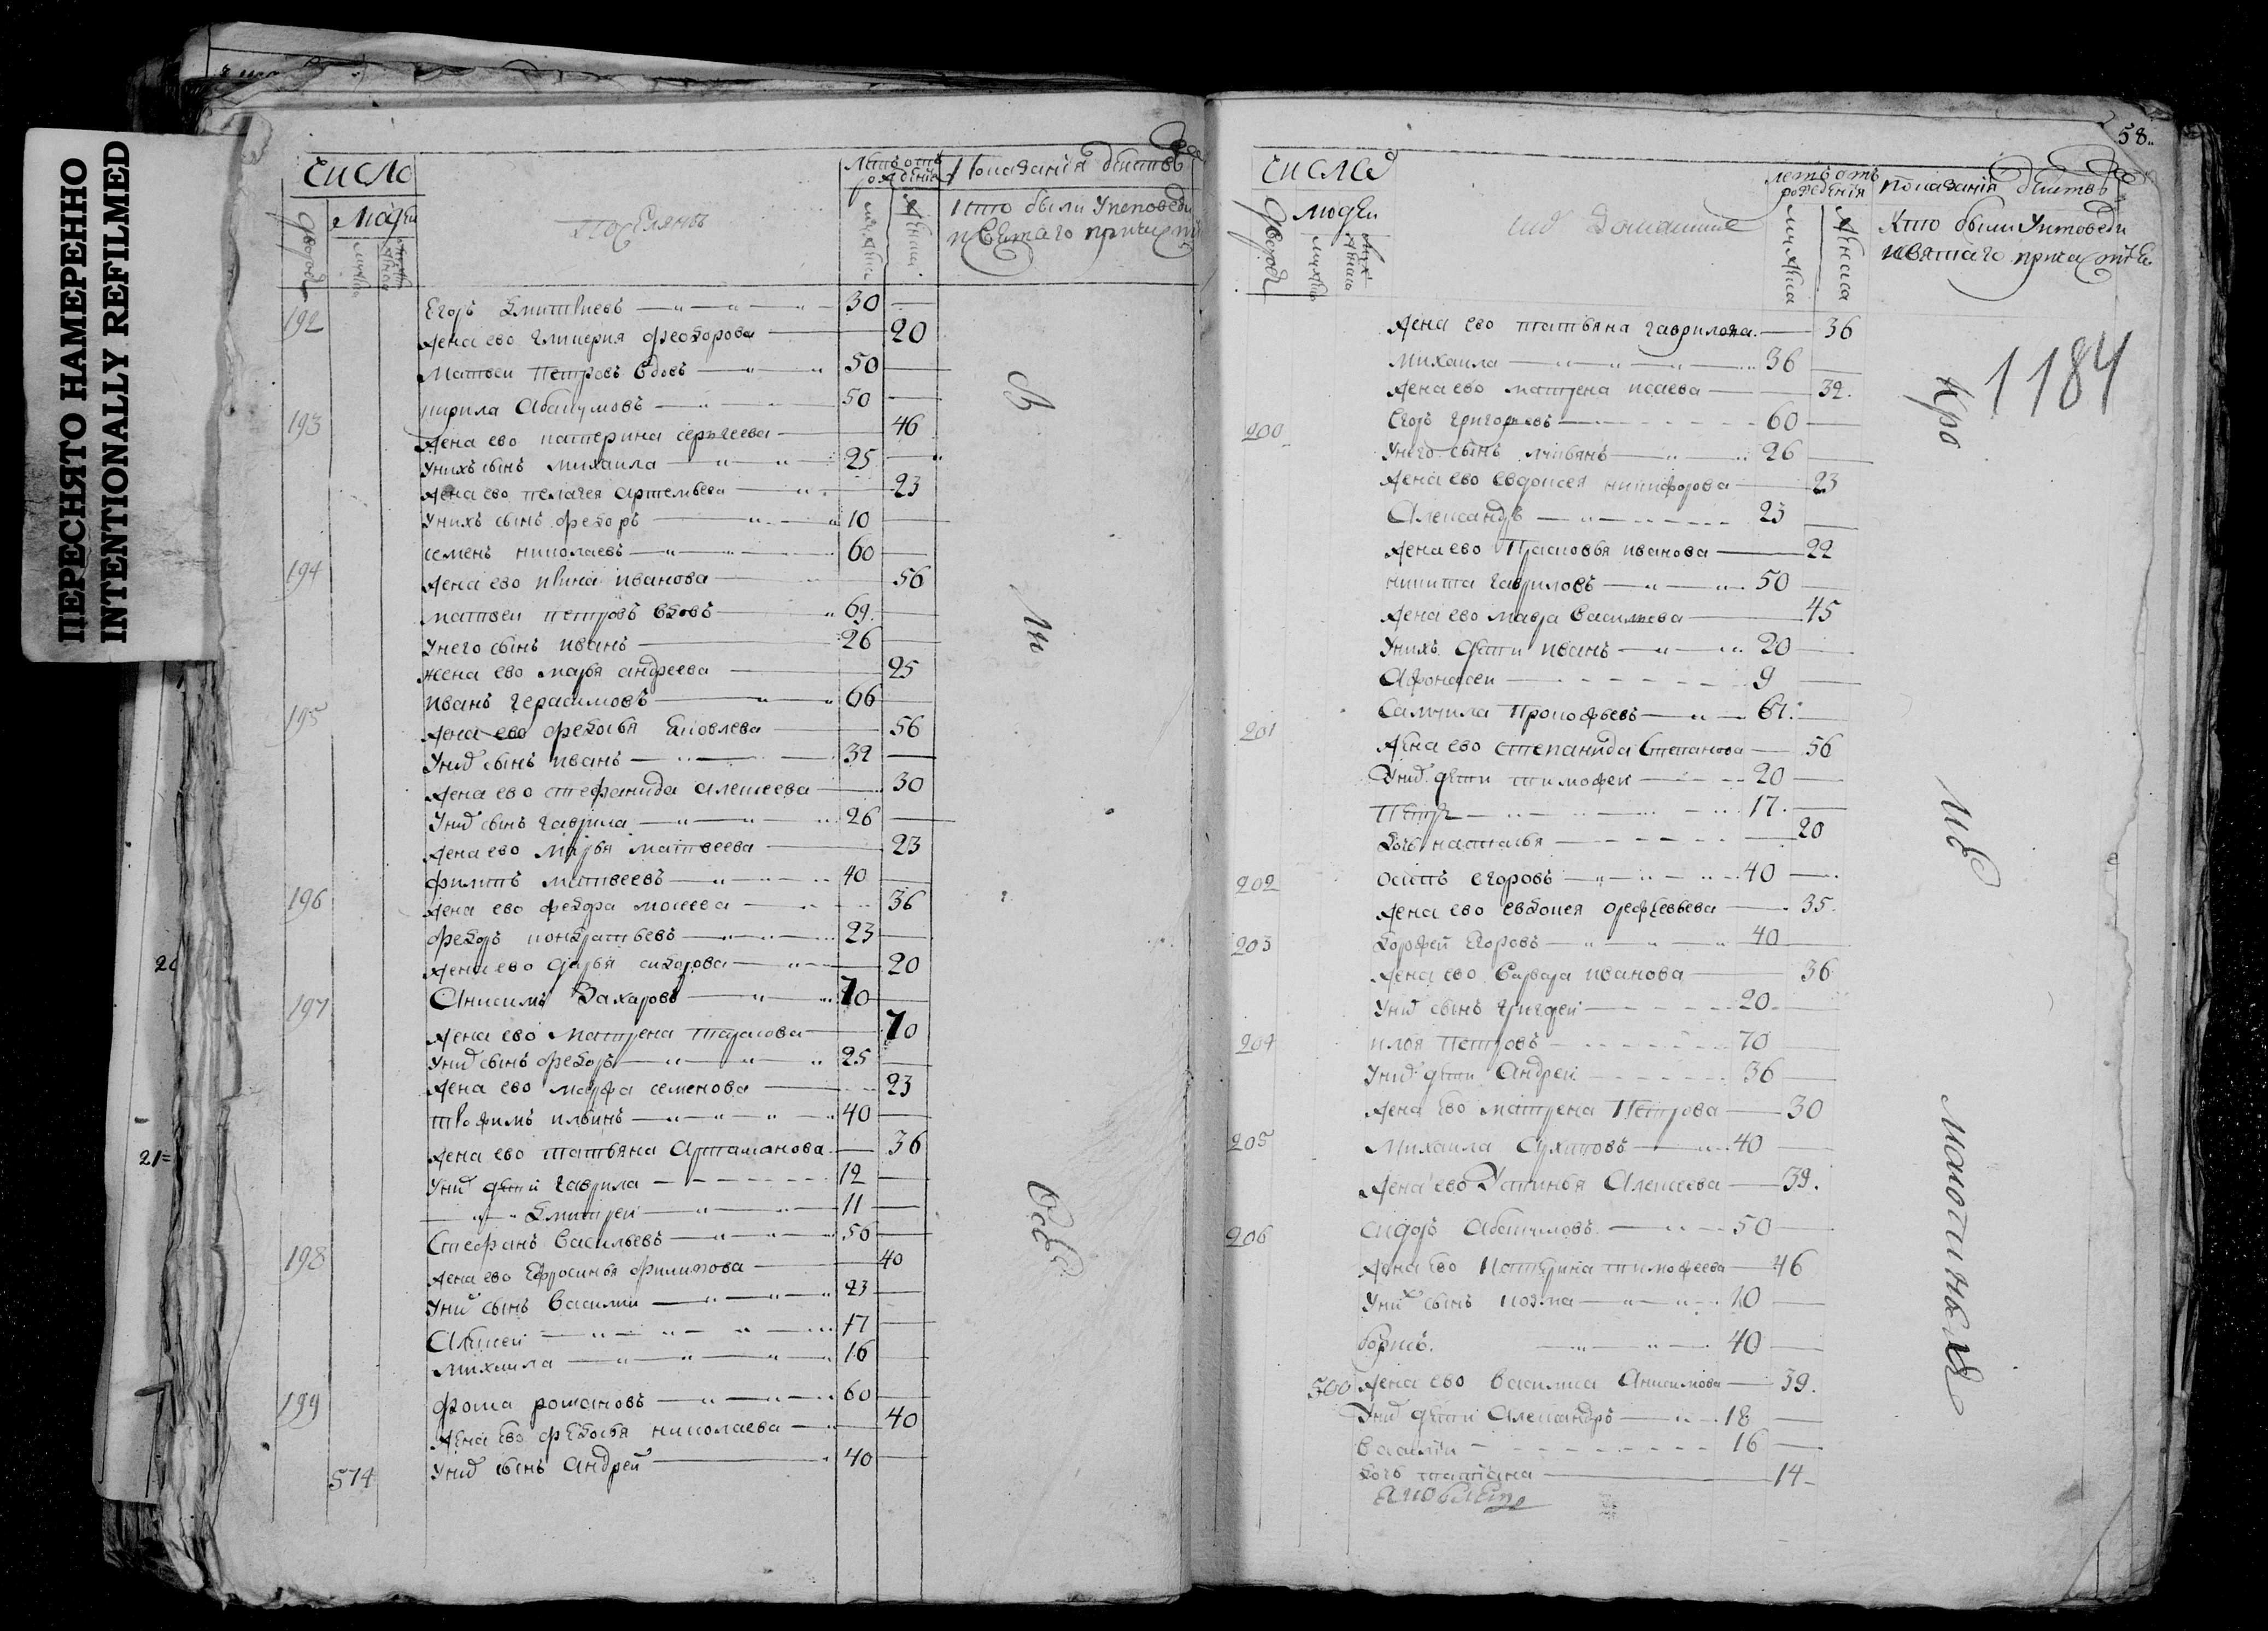 ПЕРЕСНЯТО НАМЕРЕННО
INTENTIONALLY REFILMED
число
дворовъ
людей
лѣтъ отъ рожденiя
Показанiя дѣйствъ
Кто были У исповеди
192 Егоръ Дмитрiевъ 30
Жена ево Гликерия Феодорова 20
Матвеи Петровъ вдовъ 50
193 кирила Абакумовъ 50
Жена ево катерина сергеева 46
У нихъ сынъ михаила 25
Жена ево пелагея Артемьева 23
У нихъ сынъ федоръ 10
194 семенъ николаевъ 60
Жена ево иванова 56
матвеи петровъ вдовъ 69
У него сынъ иванъ 26
жена ево марья андреева 25
195 иванъ герасимовъ 66
Жена ево федосья яковлева 56
У ниӽ сынъ иванъ 32
Жена ево стефанида алексеева 30
У ниӽ сынъ гаврила 26
Жена ево марья матвеева 23
196 филипъ матвеевъ 40
Жена ево федора моисеева 36
федоръ кондратьевъ 23
Жена ево дарья сидорова 20
197 Анисимъ Захаровъ 70
Жена ево матрена тарасова 70
У ниӽ сынъ федоръ 25
Жена ево марфа семенова 23
трофимъ ильинъ 40
Жена ево татьяна Артамонова 36
У ниӽ дети гаврила 12
Дмитрей 11
198 Стефанъ Васильевъ 50
Жена ево Ефросинья филипова 40
У ниӽ сынъ Василии 23
Алексеи 17
михаила 16
199 фома романовъ 60
Жена ево федосья николаева 40
574 У ниӽ сынъ Андрей 40
58
число
дворовъ
людей
иӽ домашние
летъ отъ рожденiя
показанiя дѣйствъ
Кто были У исповеди
Жена ево татьяна гаврилова 36
1184
михаила 36
Жена ево матрена исаева 32
200 Егоръ григорьевъ 60
У него сынъ 26
Жена ево евдокея никифорова 23
Александръ 23
Жена ево Прасковья иванова 22
никита гавриловъ 50
Жена ево мавра васильева 45
У нихъ дети иванъ 20
Афонасеи 9
201 Самоила Прокофьевъ 61
Жена ево степанида степанова 56
У ниӽ дети тимофеи 20
Петръ 17
Дочь наталья 20
202 осипъ егоровъ 40
Жена ево евдокея 35
203 Егоровъ 40
Жена ево варвара иванова 36
У ниӽ сынъ григореи 20
204 илья Петровъ 70
У ниӽ дети Андреи 36
Жена ево матрена Петрова 30
205 Михаила Архиповъ 40
Жена ево Устинья Алексеева 39
206 сидоръ Абакумовъ 50
Жена ево Катерина тимофеева 46
У ниӽ сынъ козма 10
борисъ 40
500 Жена ево василиса Анисимова 39
У ниӽ дети Александръ 18
Василiи 16
Дочь татiана 14